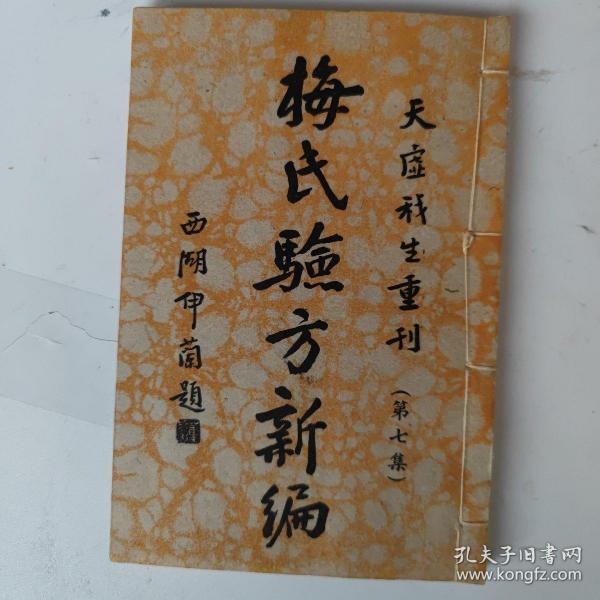 天虛我生重刊
(第七集)
梅氏驗方新編
西湖伊蘭題
孔夫子旧书网
www.kongfz.com